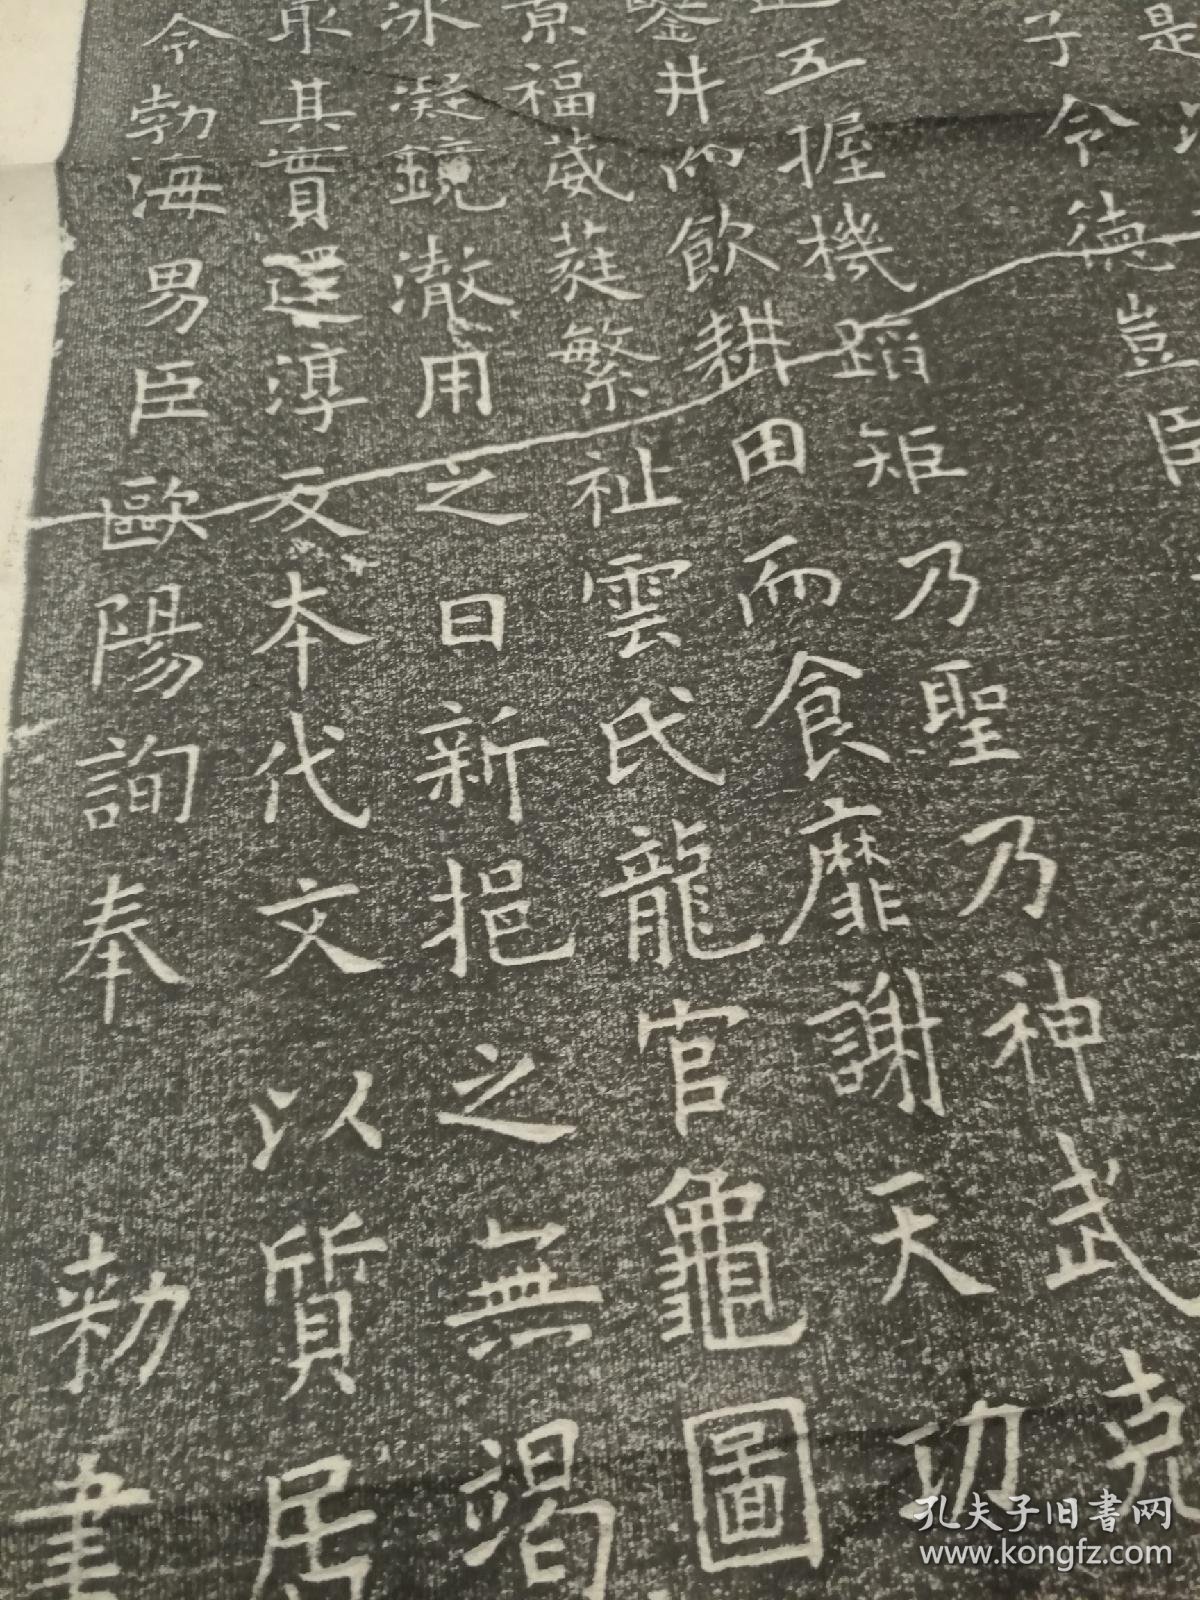 是
子令德豈臣
五握機蹈矩乃聖乃神武克
鑿井而飲耕田而食靡謝天功
景福葳蕤繁祉雲氏龍官龜圖
冰凝鏡澈用之日新挹之無竭
取其實還淳反本代文以質居
令勃海男臣歐陽詢奉 勅書
孔夫子旧書网
www.kongfz.com